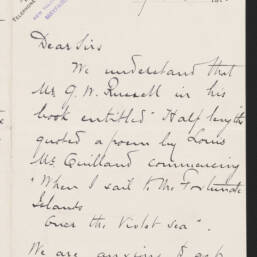 TELEPHONE
Dear Sirs
We understand that
Mr G. W. Russell in his
book entitled "Half lengths
quoted a poem by Louis
Mc Quilland commencing
"When I sail to the Fortunate
Islands
Over the Violet sea".
We are anxious to ask